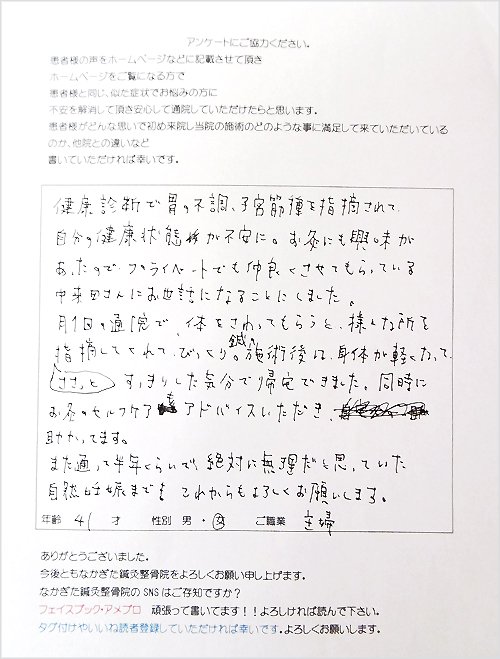 アンケートにご協力ください。
患者様の声をホームページなどに記載させて頂き
ホームページをご覧になる方で
患者様と同じ、似た症状でお悩みの方に
不安を解消して頂き安心して通院していただけたらと思います。
患者様がどんな思いで初め来院し当院の施術のどのような事に満足して来ていただいている
のか、他院との違いなど
書いていただければ幸いです。
健康診断で胃の不調、子宮筋腫を指摘されて
自分の健康状態が不安に。お灸にも興味が
あったのでプライベートでも仲良くさせてもらっている
中来田さんにお世話になることにしました。
月1回の通院で、体をさわってもらうと、様々な所を
指摘してくれて、びっくり。鍼の施術後は、身体が軽くなって
ささっと すっきりした気分で帰宅できました。同時に
お灸のセルフケアもアドバイスいただき、
助かってます。
まだ通って半年くらいで、絶対に無理だと思っていた
自然妊娠までも これからもよろしくお願いします。
年齢 41 才 性別 男・女 ご職業 主婦
ありがとうございました。
今後ともなかぎた鍼灸整骨院をよろしくお願い申し上げます。
なかぎた鍼灸整骨院のSNSはご存知ですか？
フェイスブック・アメブロ 頑張って書いてます！！よろしければ読んで下さい。
タグ付けやいいね読者登録していただければ幸いです。よろしくお願いします。